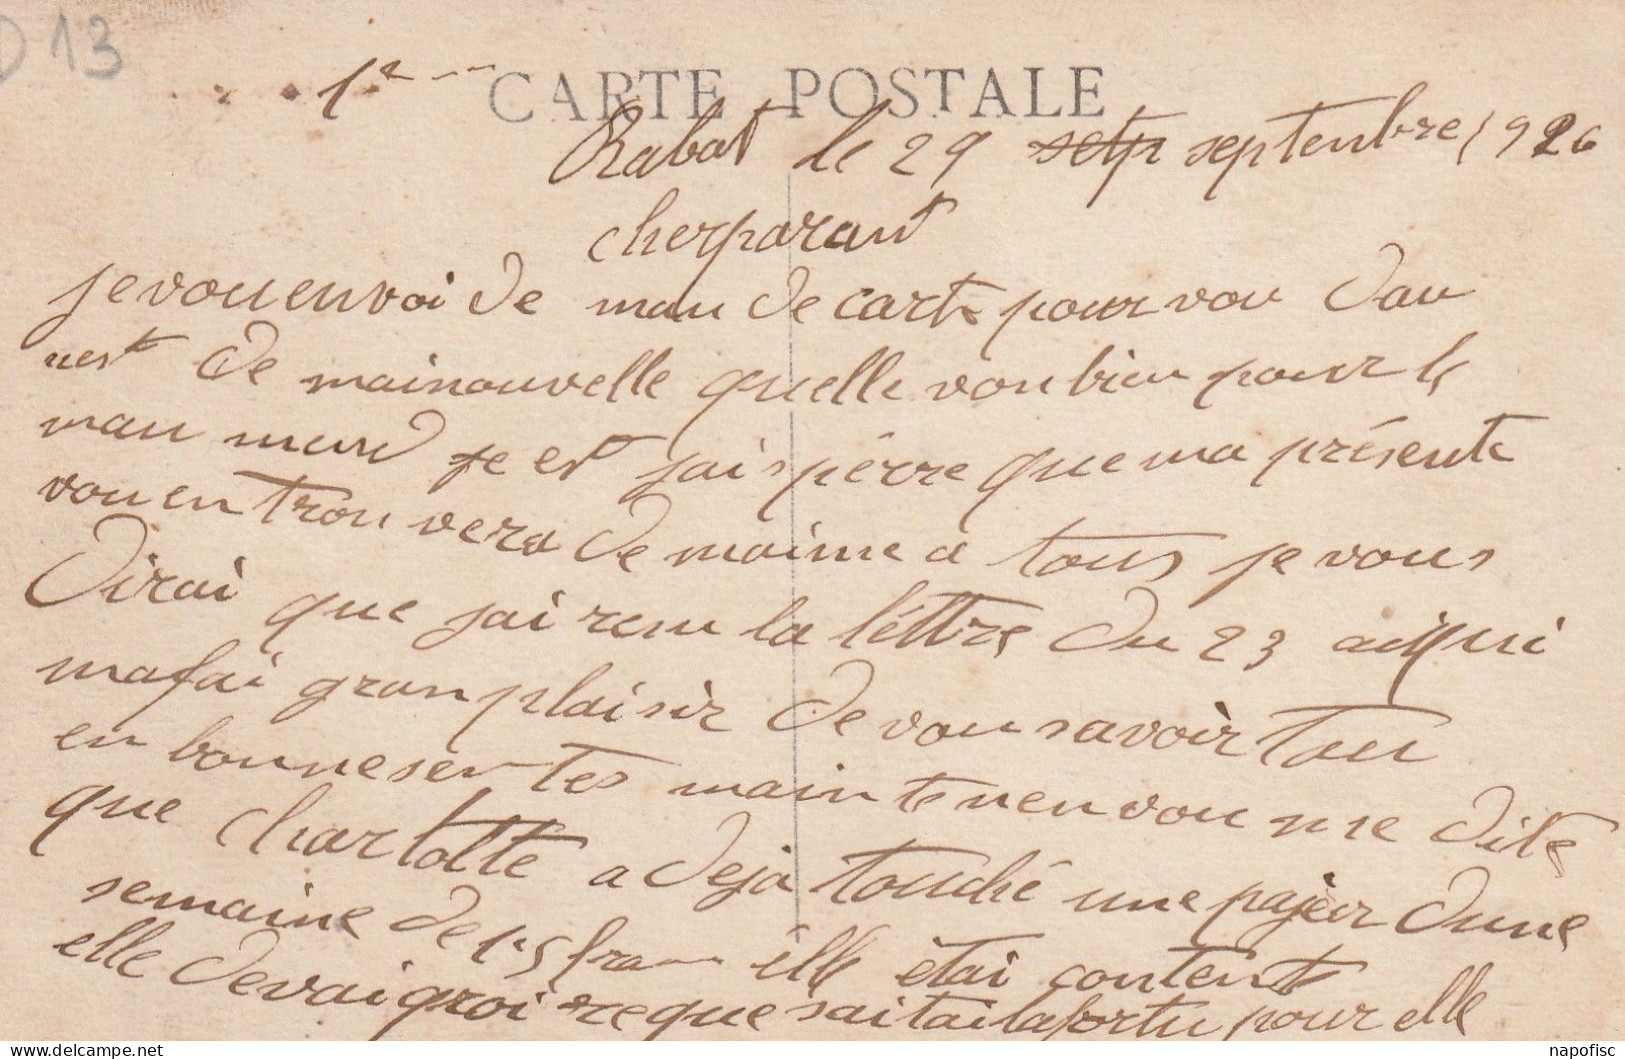 D 13
1ª
CARTE POSTALE
Rabat le 29 setp septenbre 1926
cherparant
je vou envoi de man de carte pour vou dau
nest de mainouvelle quelle von bien pour le
man mend je est jaispérre que ma présente
vou en trouvera de maime a tous je vous
dirai que jai resu la léttre du 23 aiqui
mafai gran plaisir de vou savoir tou
en bonne sentes maintenen vou me dite
que charlotte a deja touché une pajeir dune
semaine de 125 fran elle étai contente
elle devai qroirre que saitai la fortu pour elle
napofisc